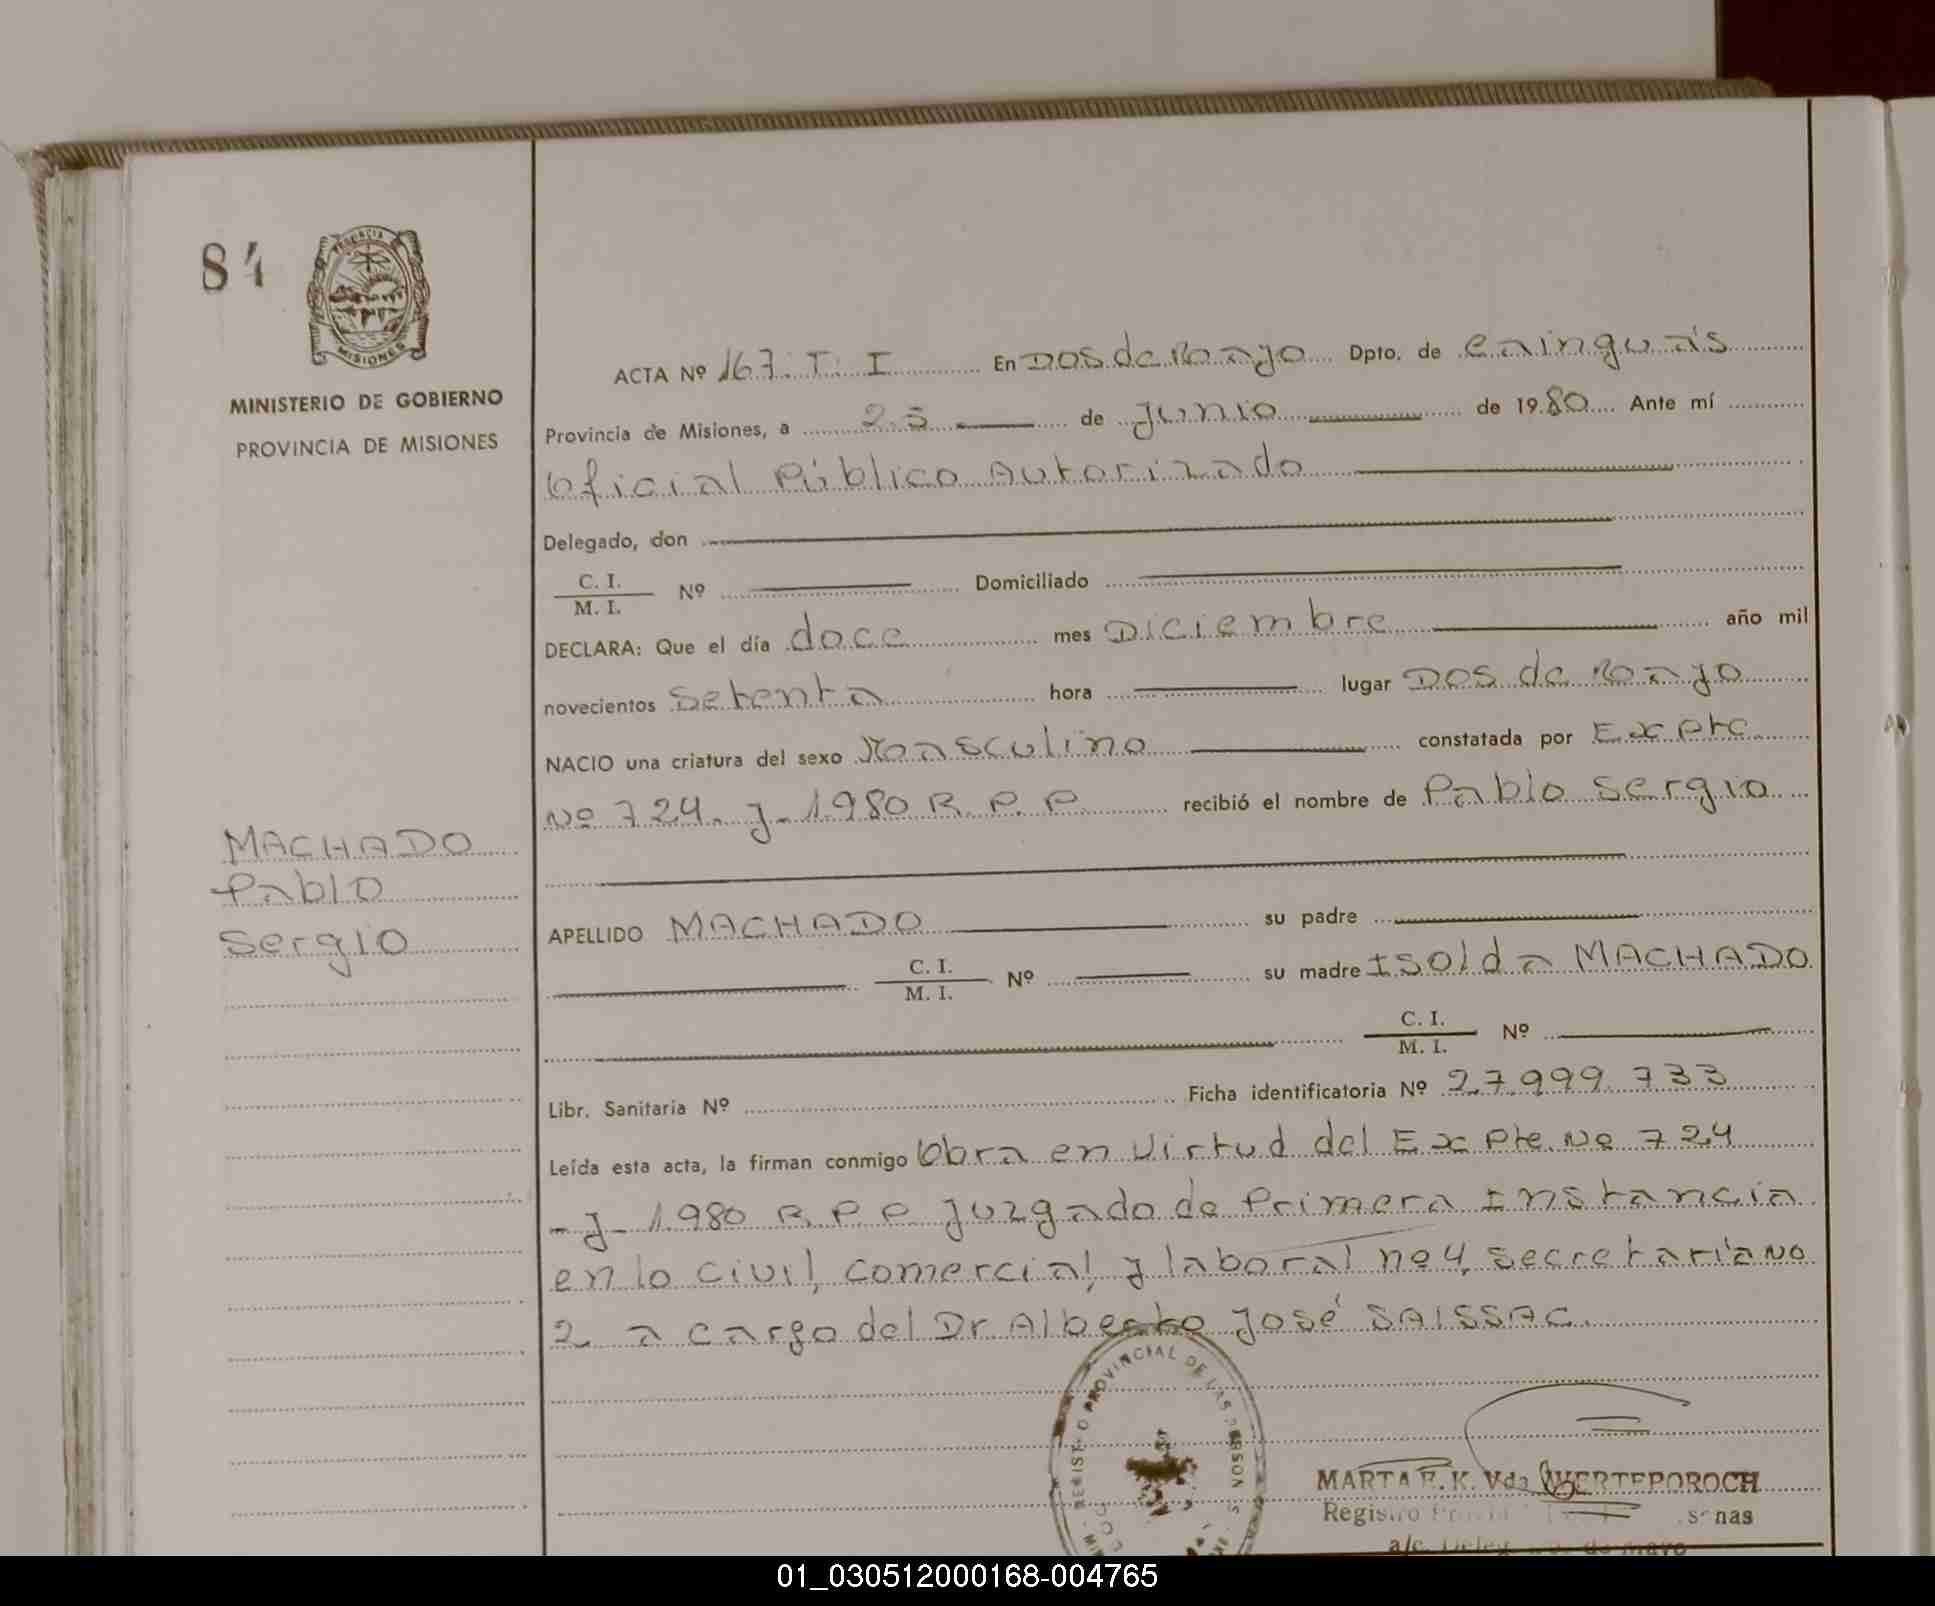 84
PROVINCIA
MISIONES
MINISTERIO DE GOBIERNO
PROVINCIA DE MISIONES
MACHADO
Pablo
Sergio
ACTA Nº 167. T. I En Dos de Mayo Dpto. de Cainguás
Provincia de Misiones, a 23 de Junio de 1980 Ante mí
Oficial Público Autorizado
Delegado, don
C. I.
M. I. Nº Domiciliado
DECLARA: Que el día doce mes Diciembre año mil
novecientos setenta hora lugar Dos de Mayo
NACIO una criatura del sexo Masculino constatada por Expte
Nº 724. J. 1980 R. P. P. recibió el nombre de Pablo Sergio
APELLIDO MACHADO su padre
C. I.
M. I. Nº su madre Isolda MACHADO
C. I.
M. I. Nº
Libr. Sanitaria Nº Ficha identificatoria Nº 27.999.733
Leída esta acta, la firman conmigo Obra en Virtud del Expte. Nº 724
- J - 1980 R. P. P Juzgado de Primera Instancia
en lo civil, comercial, y laboral nº 4, secretaría Nº
2 a cargo del Dr. Alberto José SAISSAC.
PROVINCIAL DE LAS
MARTA E. K. Vda WERTEPOROCH
Registro
a/c. Deleg. dos de mayo
01_030512000168-004765